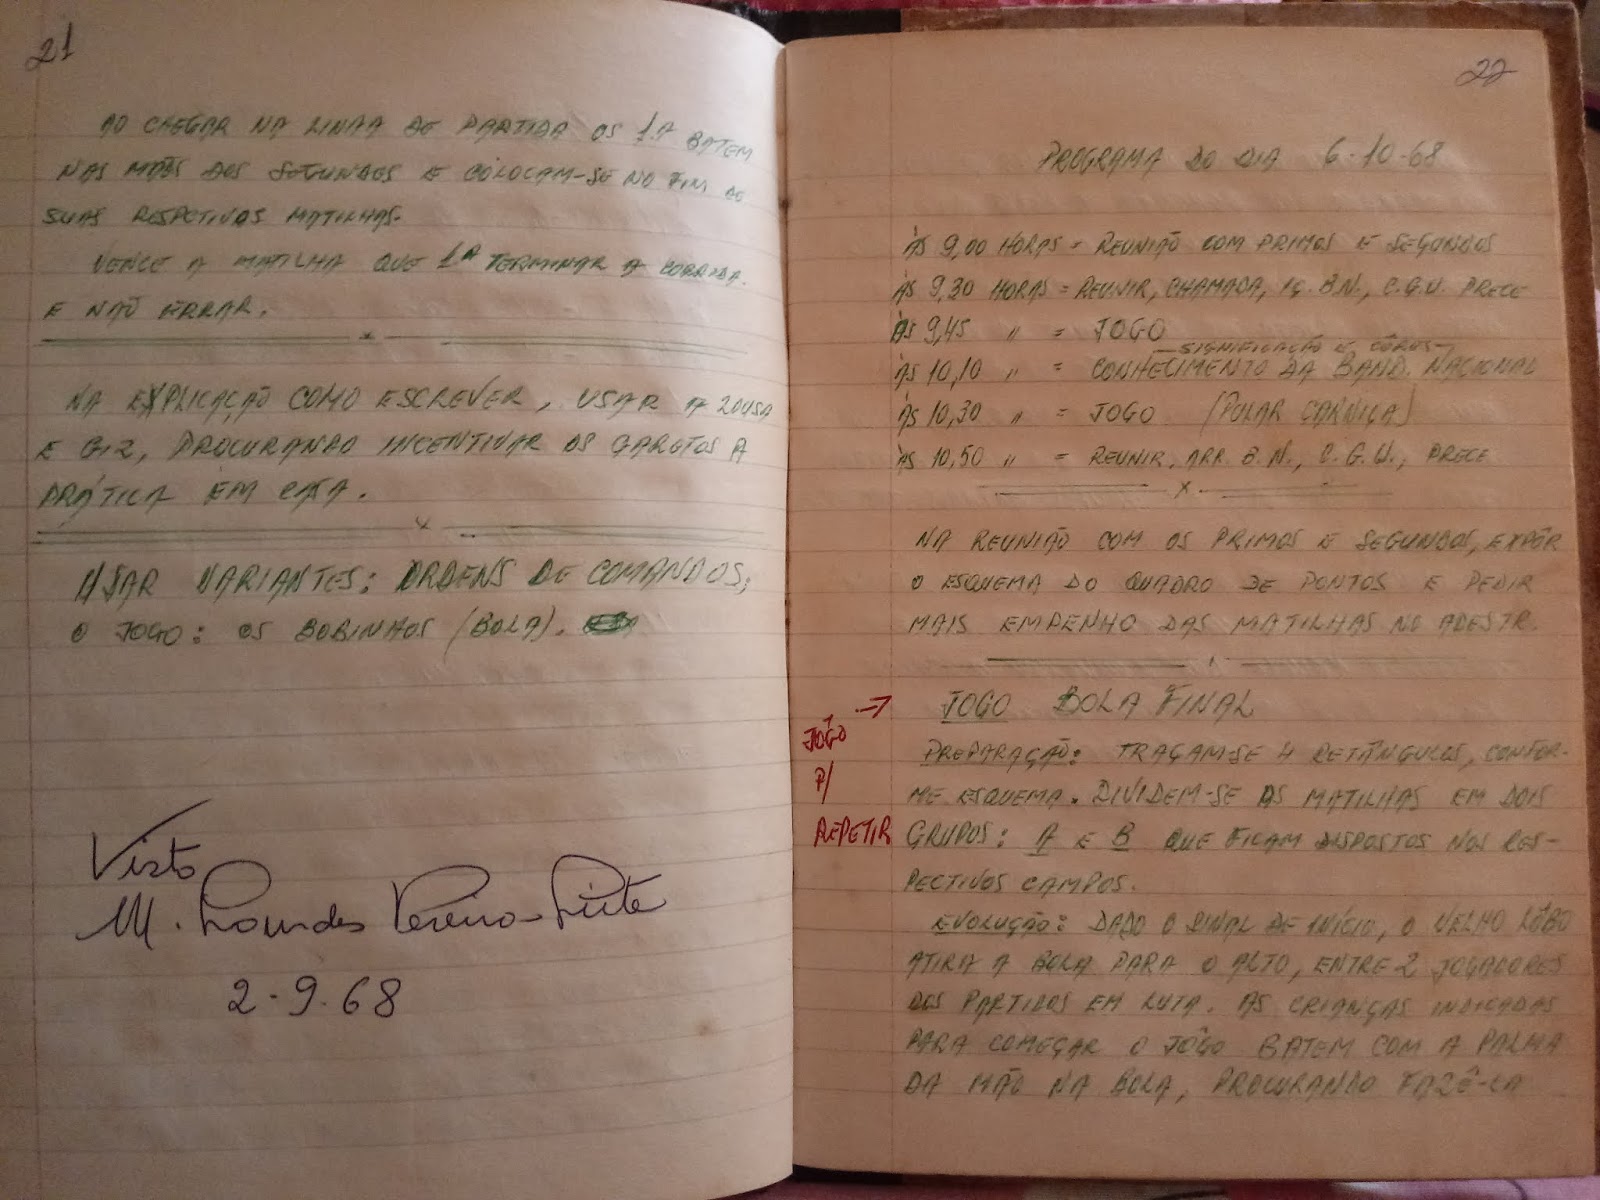 21
AO CHEGAR NA LINHA DE PARTIDA OS 1.A BATEM
NAS MÃOS DOS SEGUNDOS E COLOCAM-SE NO FIM DE
SUAS RESPETIVOS MATILHAS.
VENCE A MATILHA QUE 1ª TERMINAR A CORRIDA.
E NÃO ERRAR.
NA EXPLICAÇÃO COMO ESCREVER, USAR A LOUSA
E GIZ, PROCURANDO INCENTIVAR OS GAROTOS A
PRÁTICA EM CASA.
USAR VARIANTES: ORDENS DE COMANDOS;
O JOGO: OS BOBINHOS (BOLA).
Visto
M. Lourdes
2-9-68
22
PROGRAMA DO DIA 6-10-68
ÀS 9,00 HORAS = REUNIÃO COM PRIMOS E SEGUNDOS
ÀS 9,30 HORAS = REUNIR, CHAMADA, IÇ. B.N., C.G.U. PRECE
ÀS 9,45 " = JOGO
SIGNIFICAÇÃO E CÔRES
ÀS 10,10 " = CONHECIMENTO DA BAND. NACIONAL
ÀS 10,30 " = JOGO (PULAR CARNIÇA)
ÀS 10,50 " = REUNIR, ARR. B.N., C.G.U., PRECE
X
NA REUNIÃO COM OS PRIMOS E SEGUNDOS, EXPÔR
O ESQUEMA DO QUADRO DE PONTOS E PEDIR
MAIS EMPENHO DAS MATILHAS NO ADESTR.
JOGO BOLA FINAL
JOGO
P/
REPETIR
PREPARAÇÃO: TRAÇAM-SE 4 RETÂNGULOS, CONFOR-
ME ESQUEMA. DIVIDEM-SE AS MATILHAS EM DOIS
GRUPOS: A E B QUE FICAM DISPOSTOS NOS RES-
PECTIVOS CAMPOS.
EVOLUÇÃO: DADO O SINAL DE INÍCIO, O VELHO LÔBO
ATIRA A BOLA PARA O ALTO, ENTRE 2 JOGADORES
DOS PARTIDOS EM LUTA. AS CRIANÇAS INDICADAS
PARA COMEÇAR O JÔGO BATEM COM A PALMA
DA MÃO NA BOLA, PROCURANDO FAZÊ-LA